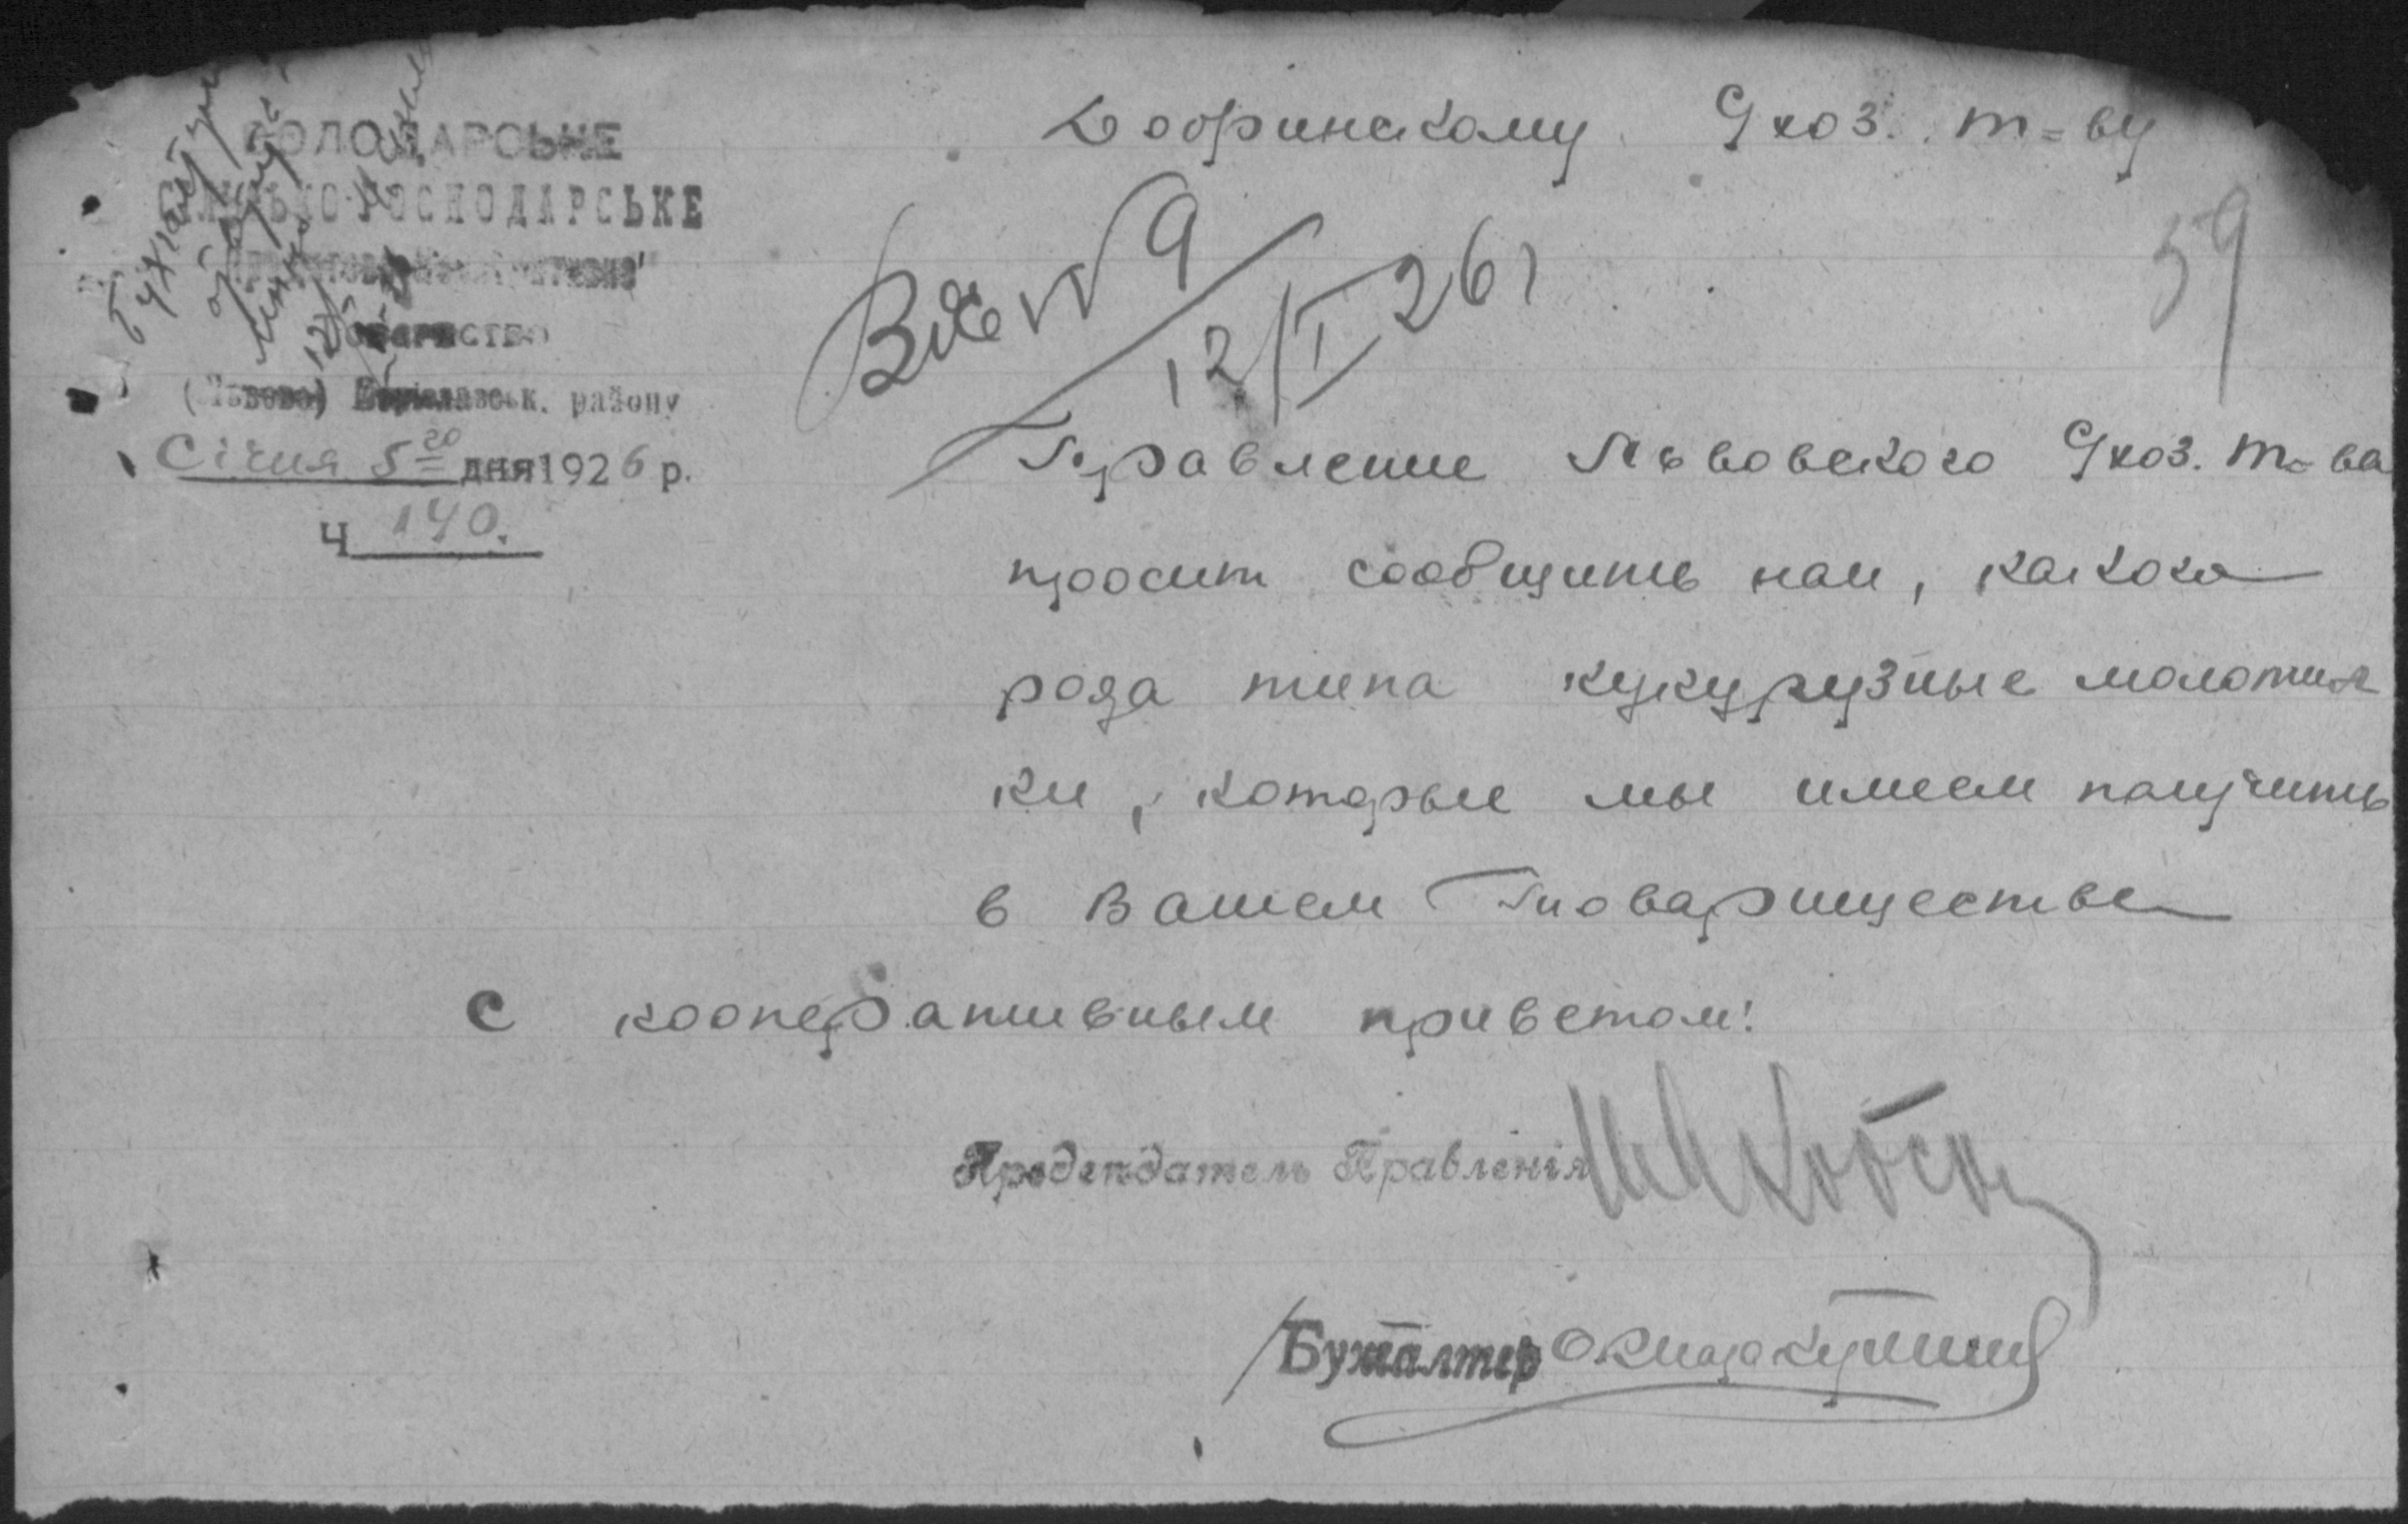 ВОЛОДАРСЬКЕ
СІЛЬСЬКО-ГОСПОДАРСЬКЕ
Товариство
(Львово) Бериславськ. району
Січня 5го дня 1926 р.
Ч 140.
Добринскому Схоз. т-ву
Вх № 9
12/I 26 г
59
Правление Львовского Схоз. т-ва
просит сообщить нам, какого
рода типа кукурузные молотил
ки, которые мы имеем получить
в Вашем Товариществе
С кооперативным приветом!
Председатель Правленія
Бухгалтер